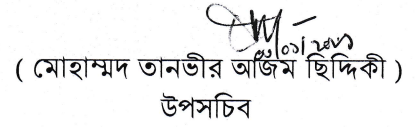 ( মোহাম্মদ তানভীর আজিম ছিদ্দিকী )
উপসচিব